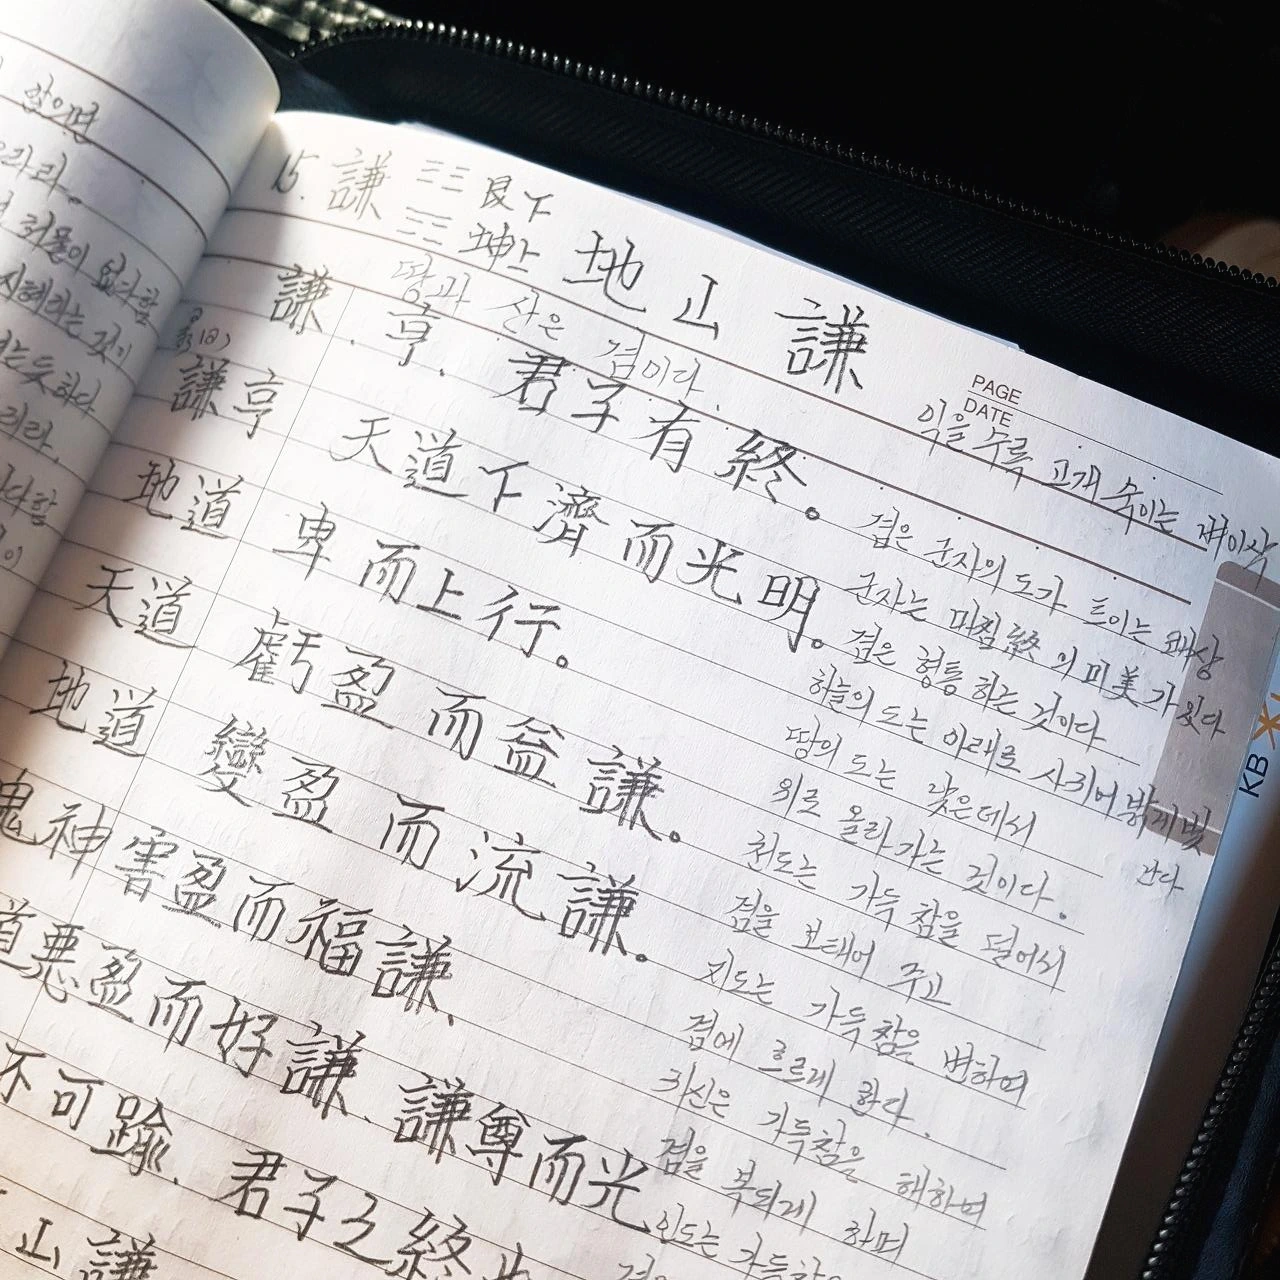 앞으면
우리라。
허물이 없다 할
지혜라는 것이
는 듯 하다
리라.
다 함
15. 謙 ☶☷ 艮下
坤上 地山謙
땅과 산은 겸이다.
PAGE
DATE
익을수록 고개 숙이는 벼이삭
謙. 亨. 君子有終。
겸은 군자의 도가 트이는 괘상
군자는 마침終의 미美가 있다
彖曰)
謙亨 天道下濟而光明。
겸은 형통하는 것이다
하늘의 도는 아래로 사귀어 밝게 빛
난다
地道 卑而上行。
땅의 도는 낮은데서
위로 올라가는 것이다.
天道 虧盈而益謙。
천도는 가득참을 덜어서
겸을 보태어 주고
地道 變盈而流謙。
지도는 가득참을 변하여
겸에 흐르게 한다.
鬼神害盈而福謙、
귀신은 가득참을 해하며
겸을 복되게 하며
道惡盈而好謙、謙尊而光
인도는 가득참
不可踰、君子之終也
겸
山謙
KB